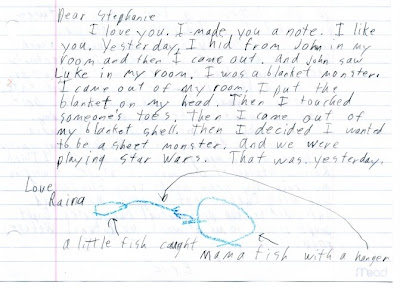 Dear Stephanie
I love you. I made you a note. I like
you. Yesterday, I hid from John in my
room and then I came out. And John saw
Luke in my room. I was a blanket monster.
I came out of my room. I put the
blanket on my head. Then I touched
someone's toes. Then I came out of
my blanket shell. Then I decided I wanted
to be a sheet monster. And we were
playing Star Wars. That was yesterday.
Love
Raina
a little fish caught
mama fish with a hanger
Mead